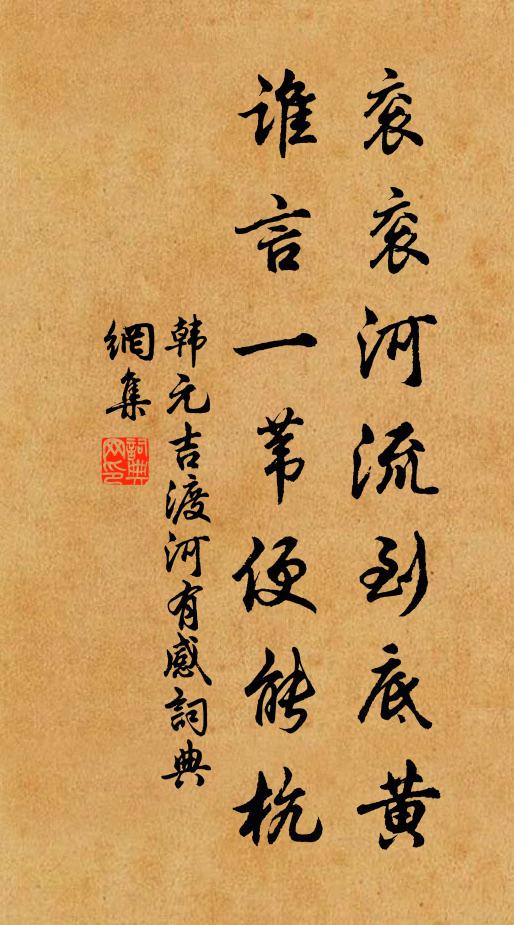 衮衮河流到底黄
谁言一苇便能杭
韩元吉渡河有感詞典
網集
詞典網印